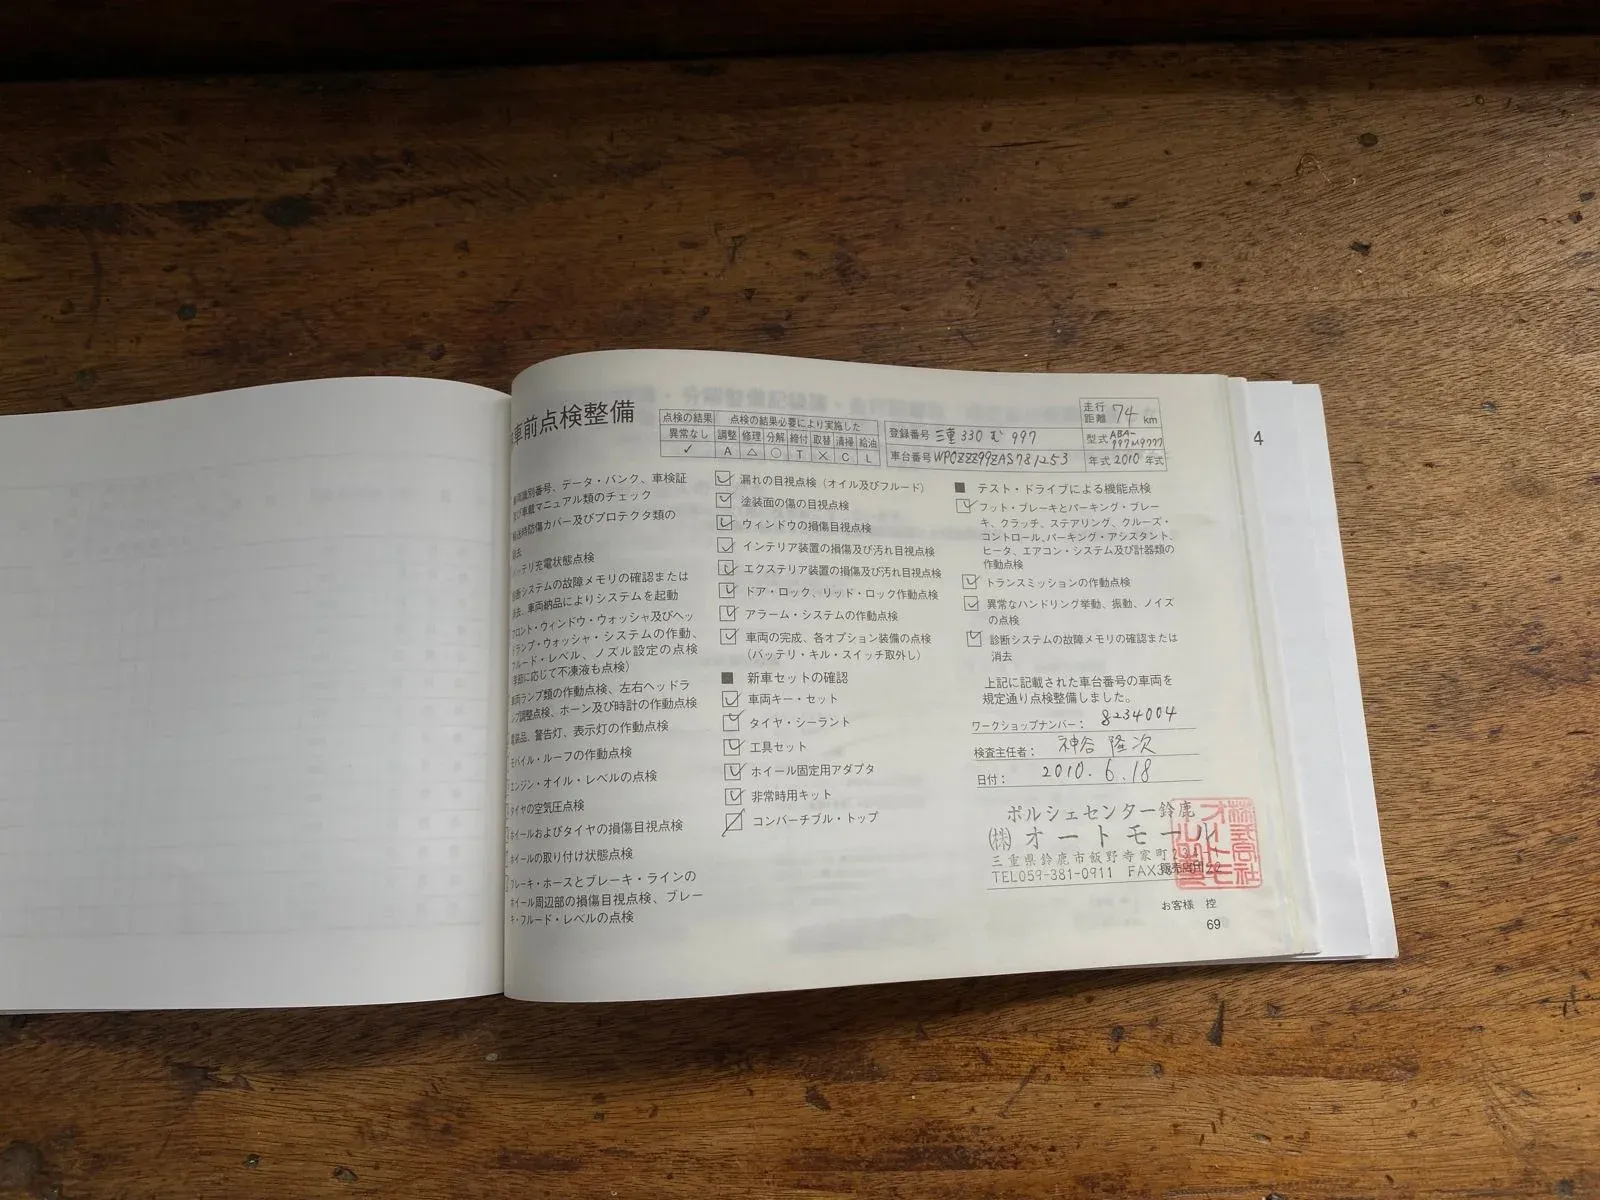 車前点検整備
点検の結果 点検の結果必要により実施した
異常なし 調整 修理 分解 締付 取替 清掃 給油
✓ A △ ○ T × C L
登録番号 三重 330 む 997
車台番号 WP0ZZZ99ZAS781253
走行距離 74 km
型式 ABA-
997M9777
年式 2010 年式
4
識別番号、データ・バンク、車検証
及び車載マニュアル類のチェック
輸送時防傷カバー及びプロテクタ類の
除去
ッテリ充電状態点検
診断システムの故障メモリの確認または
消去、車両納品によりシステムを起動
フロント・ウィンドウ・ウォッシャ及びヘッ
ドランプ・ウォッシャ・システムの作動、
フルード・レベル、ノズル設定の点検
季節に応じて不凍液も点検)
車両ランプ類の作動点検、左右ヘッドラ
ンプ調整点検、ホーン及び時計の作動点検
電装品、警告灯、表示灯の作動点検
モバイル・ルーフの作動点検
エンジン・オイル・レベルの点検
タイヤの空気圧点検
ホイールおよびタイヤの損傷目視点検
ホイールの取り付け状態点検
ブレーキ・ホースとブレーキ・ラインの
ホイール周辺部の損傷目視点検、ブレー
キ・フルード・レベルの点検
漏れの目視点検(オイル及びフルード)
塗装面の傷の目視点検
ウィンドウの損傷目視点検
インテリア装置の損傷及び汚れ目視点検
エクステリア装置の損傷及び汚れ目視点検
ドア・ロック、リッド・ロック作動点検
アラーム・システムの作動点検
車両の完成、各オプション装備の点検
(バッテリ・キル・スイッチ取外し)
■ 新車セットの確認
車両キー・セット
タイヤ・シーラント
工具セット
ホイール固定用アダプタ
非常時用キット
コンバーチブル・トップ
■ テスト・ドライブによる機能点検
フット・ブレーキとパーキング・ブレー
キ、クラッチ、ステアリング、クルーズ・
コントロール、パーキング・アシスタント、
ヒータ、エアコン・システム及び計器類の
作動点検
トランスミッションの作動点検
異常なハンドリング挙動、振動、ノイズ
の点検
診断システムの故障メモリの確認または
消去
上記に記載された車台番号の車両を
規定通り点検整備しました。
ワークショップナンバー: 8234004
検査主任者: 神谷 隆次
日付: 2010.6.18
ポルシェセンター鈴鹿
(株)オートモール
三重県鈴鹿市飯野寺家町
TEL059-381-0911 FAX
販売店印
株式会社オートモール
お客様 控
69